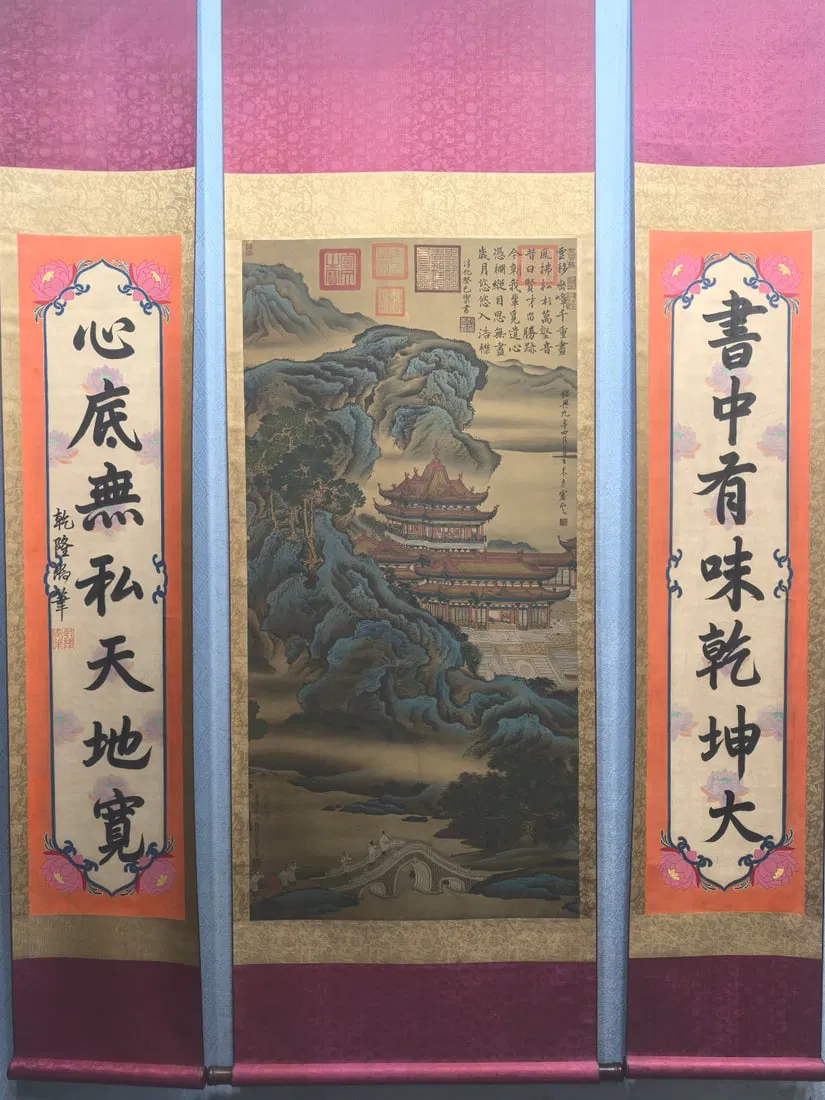 書中有味乾坤大
雲移 千重畫
風拂松杉萬壑音
昔日賢才留勝跡
今朝我輩覓遺心
憑欄縱目思無盡
歲月悠悠入浩襟
淳化癸巳御書
紹興九年四月
心底無私天地寬
乾隆御筆